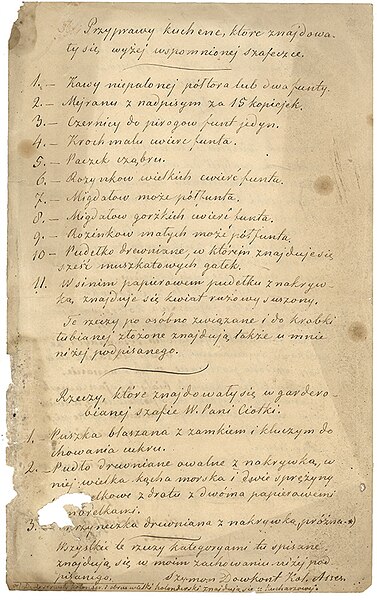 Przyprawy kuchene, które znajdowa-
ły się wyżej wspomnionej szafeczce.
1. – Kawy niepalonej półtora lub dwa funty.
2. – Mejranu z nadpisym za 15 kopiejek.
3. – Czernicy do pirogow funt jedyn.
4. – Krochmalu cwierć funta.
5. – Paczek
6. – Rozynkow wielkich cwierć funta.
7. – Migdałow może pół funta.
8. – Migdałow gorżkich cwierć funta.
9. – Rozinkow małych może pół funta.
10 – Pudełko drewniane, w którém znajduje się
sześć muszkatowych gałek.
11. W sinim papierowem pudełku z nakryw-
ką, znajduje się kwiat rużowy suszony.
Te rzeczy po osobno związane i do krobki
łubianej złożone znajdują, także u mnie
niżej podpisanego.
Rzeczy, które znajdowały się w gardero-
bianej szafie W. Pani Ciotki.
1. Puszka blaszana z zamkiem i kluczym do
chowania cukru.
2. – Pudło drewniane owalne z nakrywką, w
niej wielka kącha morska i dwie sprężyny
z drata z dwoma papierowemi
3. drewniana z nakrywką, próżna.
Wszystkie te rzeczy kategoryami tu spisane,
znajdują się w moim zachowaniu niżej pod-
pisanego, Szymon Dowkont Kol. Asses.